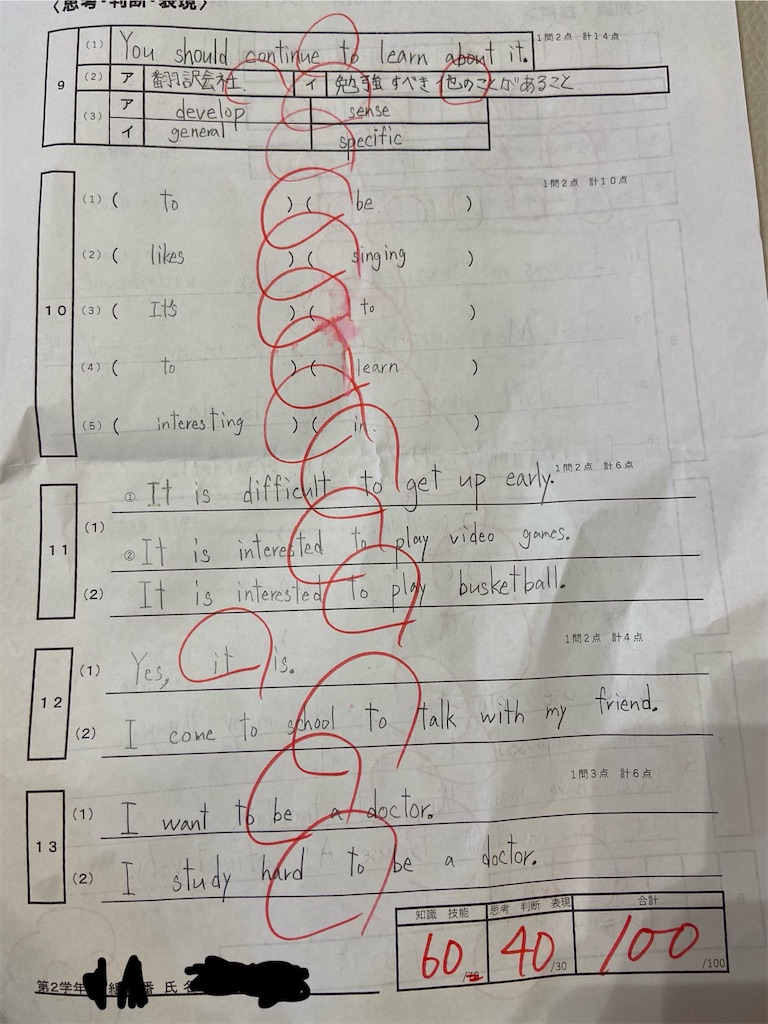 〈思考・判断・表現〉
1問2点 計14点
9 (1) You should continue to learn about it.
(2) ア 翻訳会社. イ 勉強すべき他のことがあること
(3) ア develop sense
イ general specific
1問2点 計10点
10 (1) ( to ) ( be )
(2) ( likes ) ( singing )
(3) ( It's ) ( to )
(4) ( to ) ( learn )
(5) ( interesting ) ( in )
1問2点 計6点
11 (1) ① It is difficult to get up early.
② It is interested to play video games.
(2) It is interested to play busketball.
1問2点 計4点
12 (1) Yes, it is.
(2) I come to school to talk with my friend.
1問3点 計6点
13 (1) I want to be a doctor.
(2) I study hard to be a doctor.
知識 技能 思考 判断 表現 合計
60 40 /30 100 /100
第2学年 組 番 氏名